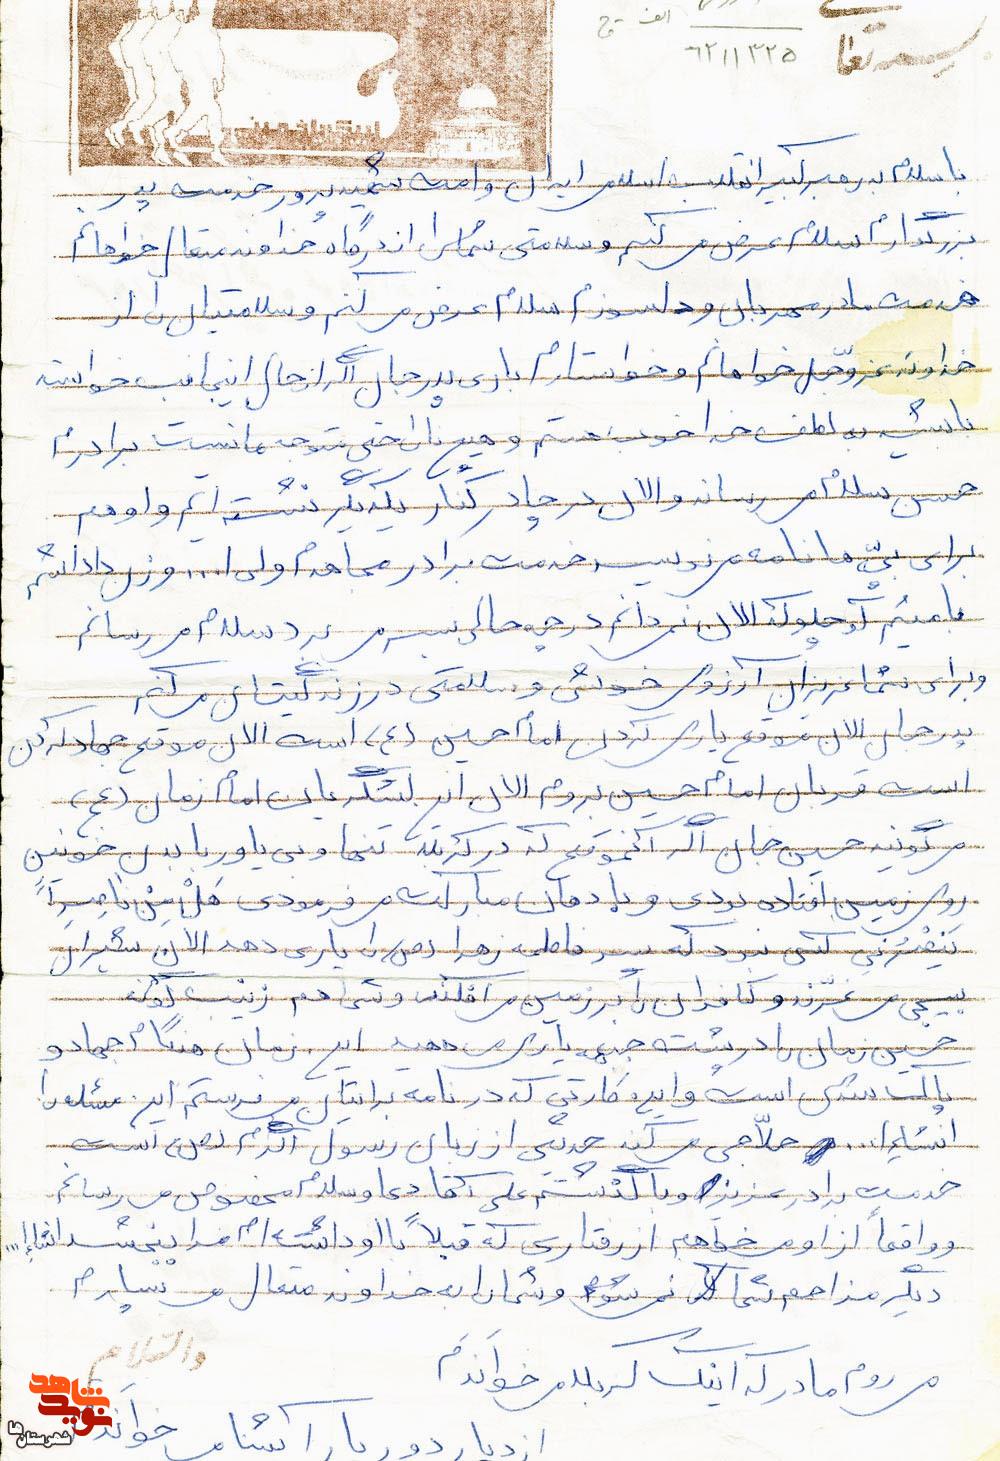 بسمه تعالی
الف
۶۲۱۱۳۲۵
با سلام بر رهبر کبیر انقلاب اسلامی ایران و امت شهید پرور خدمت پدر
بزرگوارم سلام عرض می کنم و سلامتی شما را از درگاه خداوند متعال خواهانم
خدمت مادر مهربان و دلسوزم سلام عرض می کنم و سلامتیتان را از
خداوند عزّوجل خواهانم و خواستارم باری پدر جان اگر از حال اینجانب خواسته
باشید به لطف خدا خوب هستم و هیچ ناراحتی متوجه ما نیست برادرم
حسن سلام می رساند و الان در چادر کنار یکدیگر نشسته ایم و او هم
برای بچّه ها نامه می نویسد خدمت برادر مجاهدم ولی ا... و زن داداشم
با میثم کوچلو که الان نمی دانم در چه حالی بسر می برد سلام می رسانم
و برای شما عزیزان آرزوی خوشی و سلامتی در زندگیتان می کنم
پدر جان الان موقع یاری کردن امام حسین (ع) است الان موقع جهاد کردن
است قربان امام حسین بروم الان این لشگریان امام زمان (عج)
می گویند حسین جان اگر آنموقع که در کربلا تنها و بی یاور با بدن خونین
روی زمین افتاده بودی و با دهان مبارکت می فرمودی هَل مِن ناصِراً
یَنصُرنی کسی نبود که پسر فاطمه زهرا (ص) را یاری دهد الان شیران
بسیجی می غرّند و کافران را بر زمین می افکنند و شما هم زینب گونه
حسین زمان را در پشت جبهه یاری می دهید این زمان هنگام جهاد و
پاک شدن است و این کارتی که در نامه برایتان می فرستم این مسئله را
انشاءا... حلاّجی می کند حدیثی از زبان رسول اکرم (ص) است
خدمت برادر عزیزم و با گذشتم علی آقا دعا و سلام مخصوص می رسانم
و واقعاً از او می خواهم از رفتاری که قبلاً با او داشته ام مرا ببخشد انشاءا...
دیگر مزاحم شما نمی شوم و شما را به خداوند متعال می سپارم
والسّلام
می روم مادر که اینک کربلا می خوانَدَم
از دیار دور یار آشنا می خوانَدَم
نوید شاهد
شهرستان ها